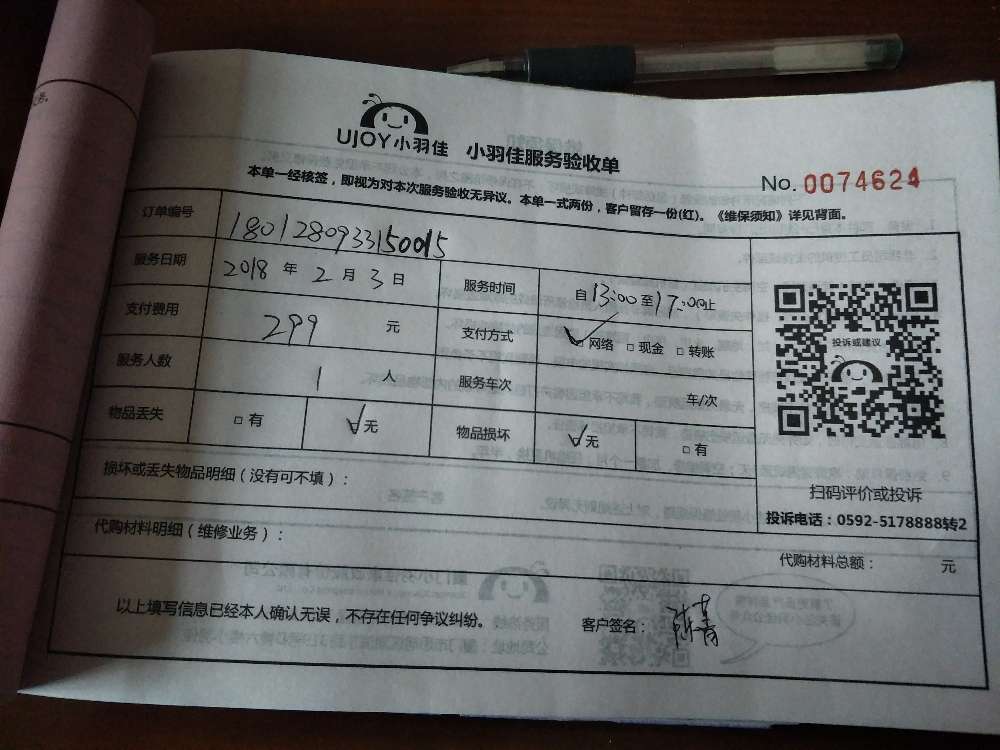 UJOY小羽佳 小羽佳服务验收单
No. 0074624
本单一经核签，即视为对本次服务验收无异议。本单一式两份，客户留存一份(红)。《维保须知》详见背面。
订单编号 1801280933150015
服务日期 2018 年 2 月 3 日 服务时间 自 13:00 至 17:00 止
支付费用 299 元 支付方式 ✓网络 □ 现金 □ 转账
服务人数 1 人 服务车次 车/次
物品丢失 □ 有 ✓无 物品损坏 ✓无 □ 有
投诉或建议
扫码评价或投诉
投诉电话：0592-5178888转2
损坏或丢失物品明细（没有可不填）：
代购材料明细（维修业务）：
代购材料总额： 元
以上填写信息已经本人确认无误，不存在任何争议纠纷。 客户签名：